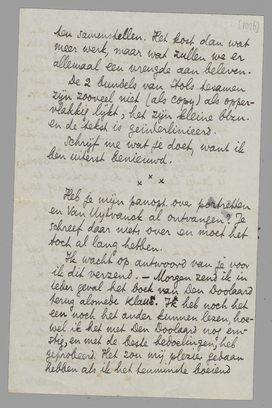 (1926)
ten samenstellen. Het kost dan wat
meer werk, maar wat zullen we er
allemaal een vreugde aan beleven.
De 2 bundels van Stols tesamen
zijn zooveel niet (als copy) als opper-
vlakkig lijkt, het zijn kleine blzn.
en de tekst is geïnterlinieerd.
Schrijf me wat je doet, want ik
ben uiterst benieuwd.
x x x
Heb je mijn panopt. over portretten
en Van Uytvanck al ontvangen? Je
schreef daar niets over en moet het
toch al lang hebben.
Ik wacht op antwoord van je voor
ik dit verzend. — Morgen zend ik in
ieder geval het boek van Den Doolaard
terug alsmede Klaus. Ik heb noch het
een noch het ander kunnen lezen, hoe-
wel ik het met Den Doolaard nog ern-
stig, en met de beste bedoelingen, heb
geprobeerd. Het zou mij plezier gedaan
hebben als ik het tenminste boeiend